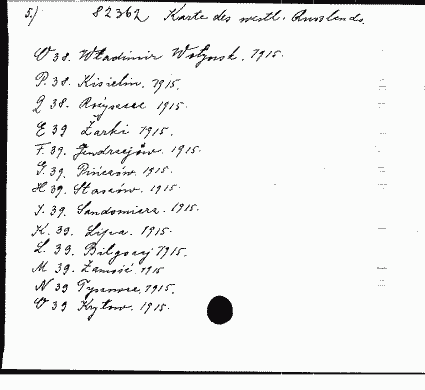 5.) 82362 Karte des westl. Russlands.
O 38. Władimir Wołynsk. 1915.
P. 38. Kisielin. 1915.
Q 38. Rożyszcze 1915.
E 39 Żarki 1915.
F. 39. Jendrzejów. 1915.
G. 39. Pińczów. 1915.
H 39. Staszów. 1915.
I. 39. Sandomierz. 1915.
K. 39. Lipa. 1915.
L. 39. Biłgoraj 1915.
M 39. Zamość 1915
N 39 Tyszowce. 1915.
O 39 Kryłow. 1915.